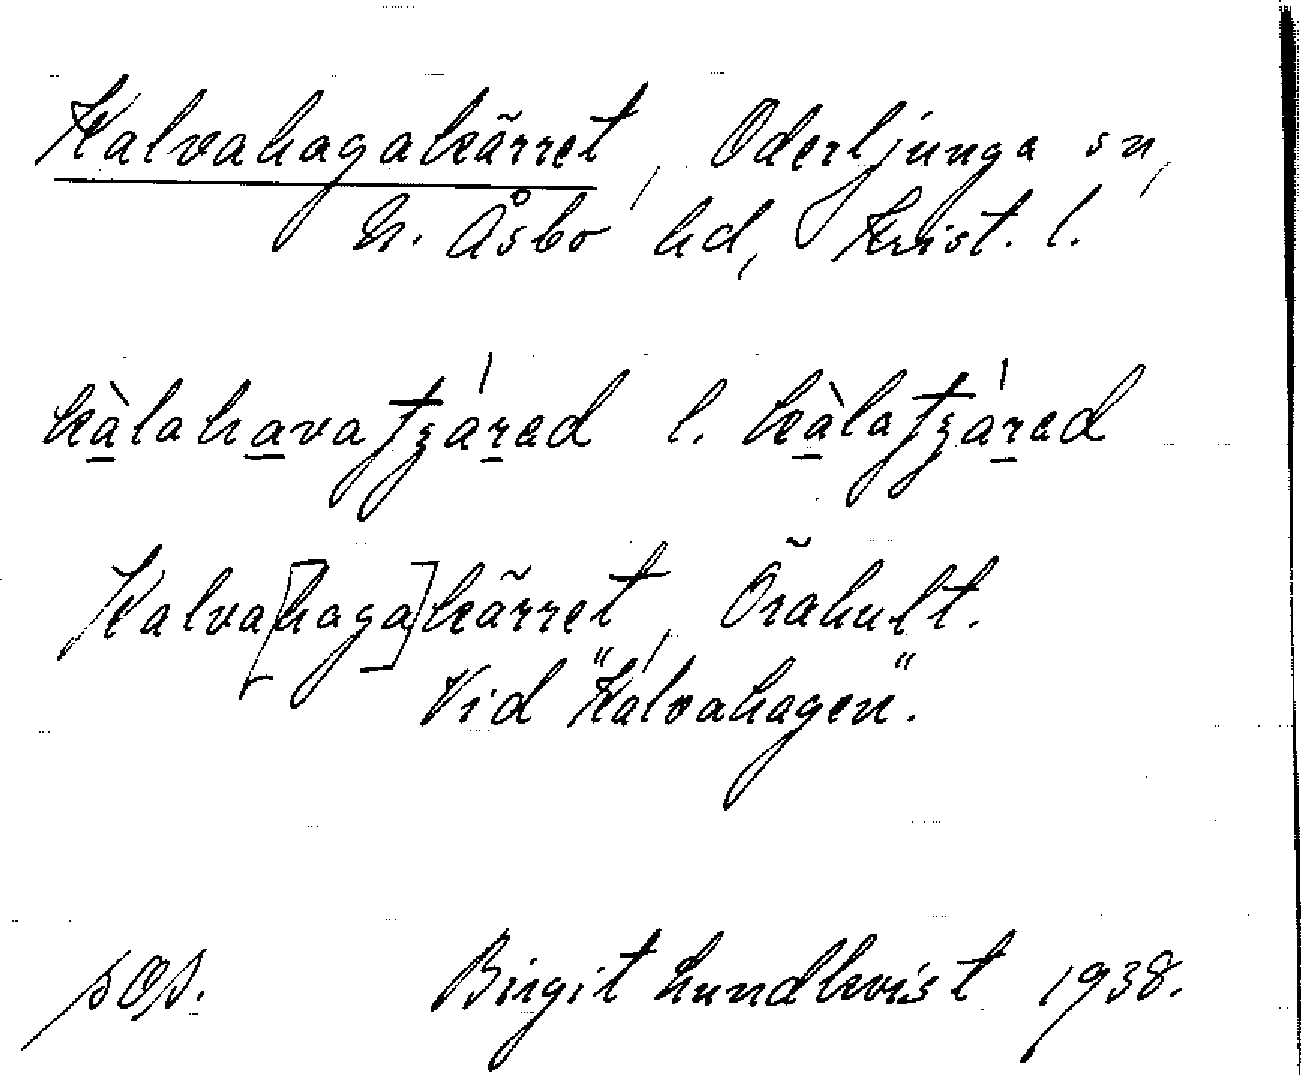 Kalvahagakärret, Oderljunga sn,
N. Åsbo hd, Krist. l.
kàlahavatʒá̱red l. kàlatʒá̱red
Kalva[haga]kärret, Örahult.
Vid "Kalvahagen".
sos. Birgit Lundkvist 1938.